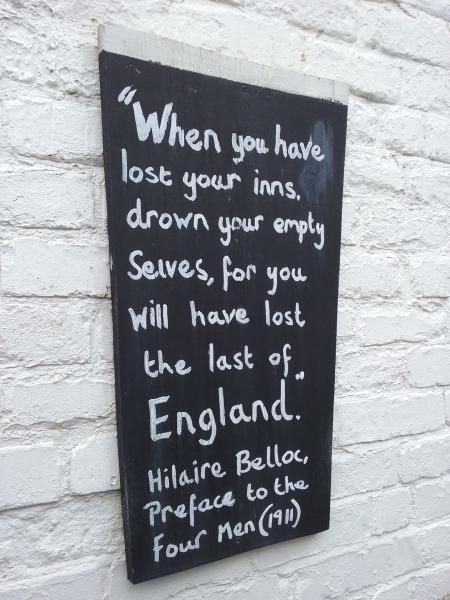 "When you have
lost your inns.
drown your empty
Selves, for you
will have lost
the last of
England."
Hilaire Belloc,
Preface to the
Four Men (1911)